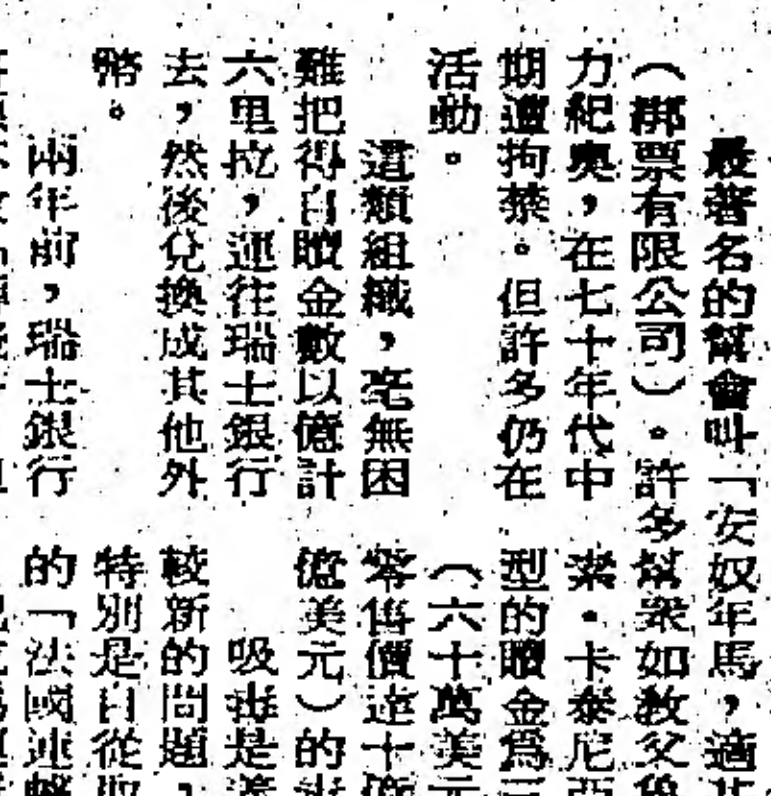 最著名的幫會叫「安奴年馬，適
（綁票有限公司）。許多幫衆如教父
力紀奧，在七十年代中
期遭拘禁。但許多仍在
活動。
這類組織，毫無困
難把得自贖金數以億計
六里拉，運往瑞士銀行
去，然後兌換成其他外
幣。
兩年前，瑞士銀行
索·卡泰尼亞
型的贖金爲三
（六十萬美元
零售價達十億
億美元）的
吸毒是
較新的問題，
特別是自從
的「法國連